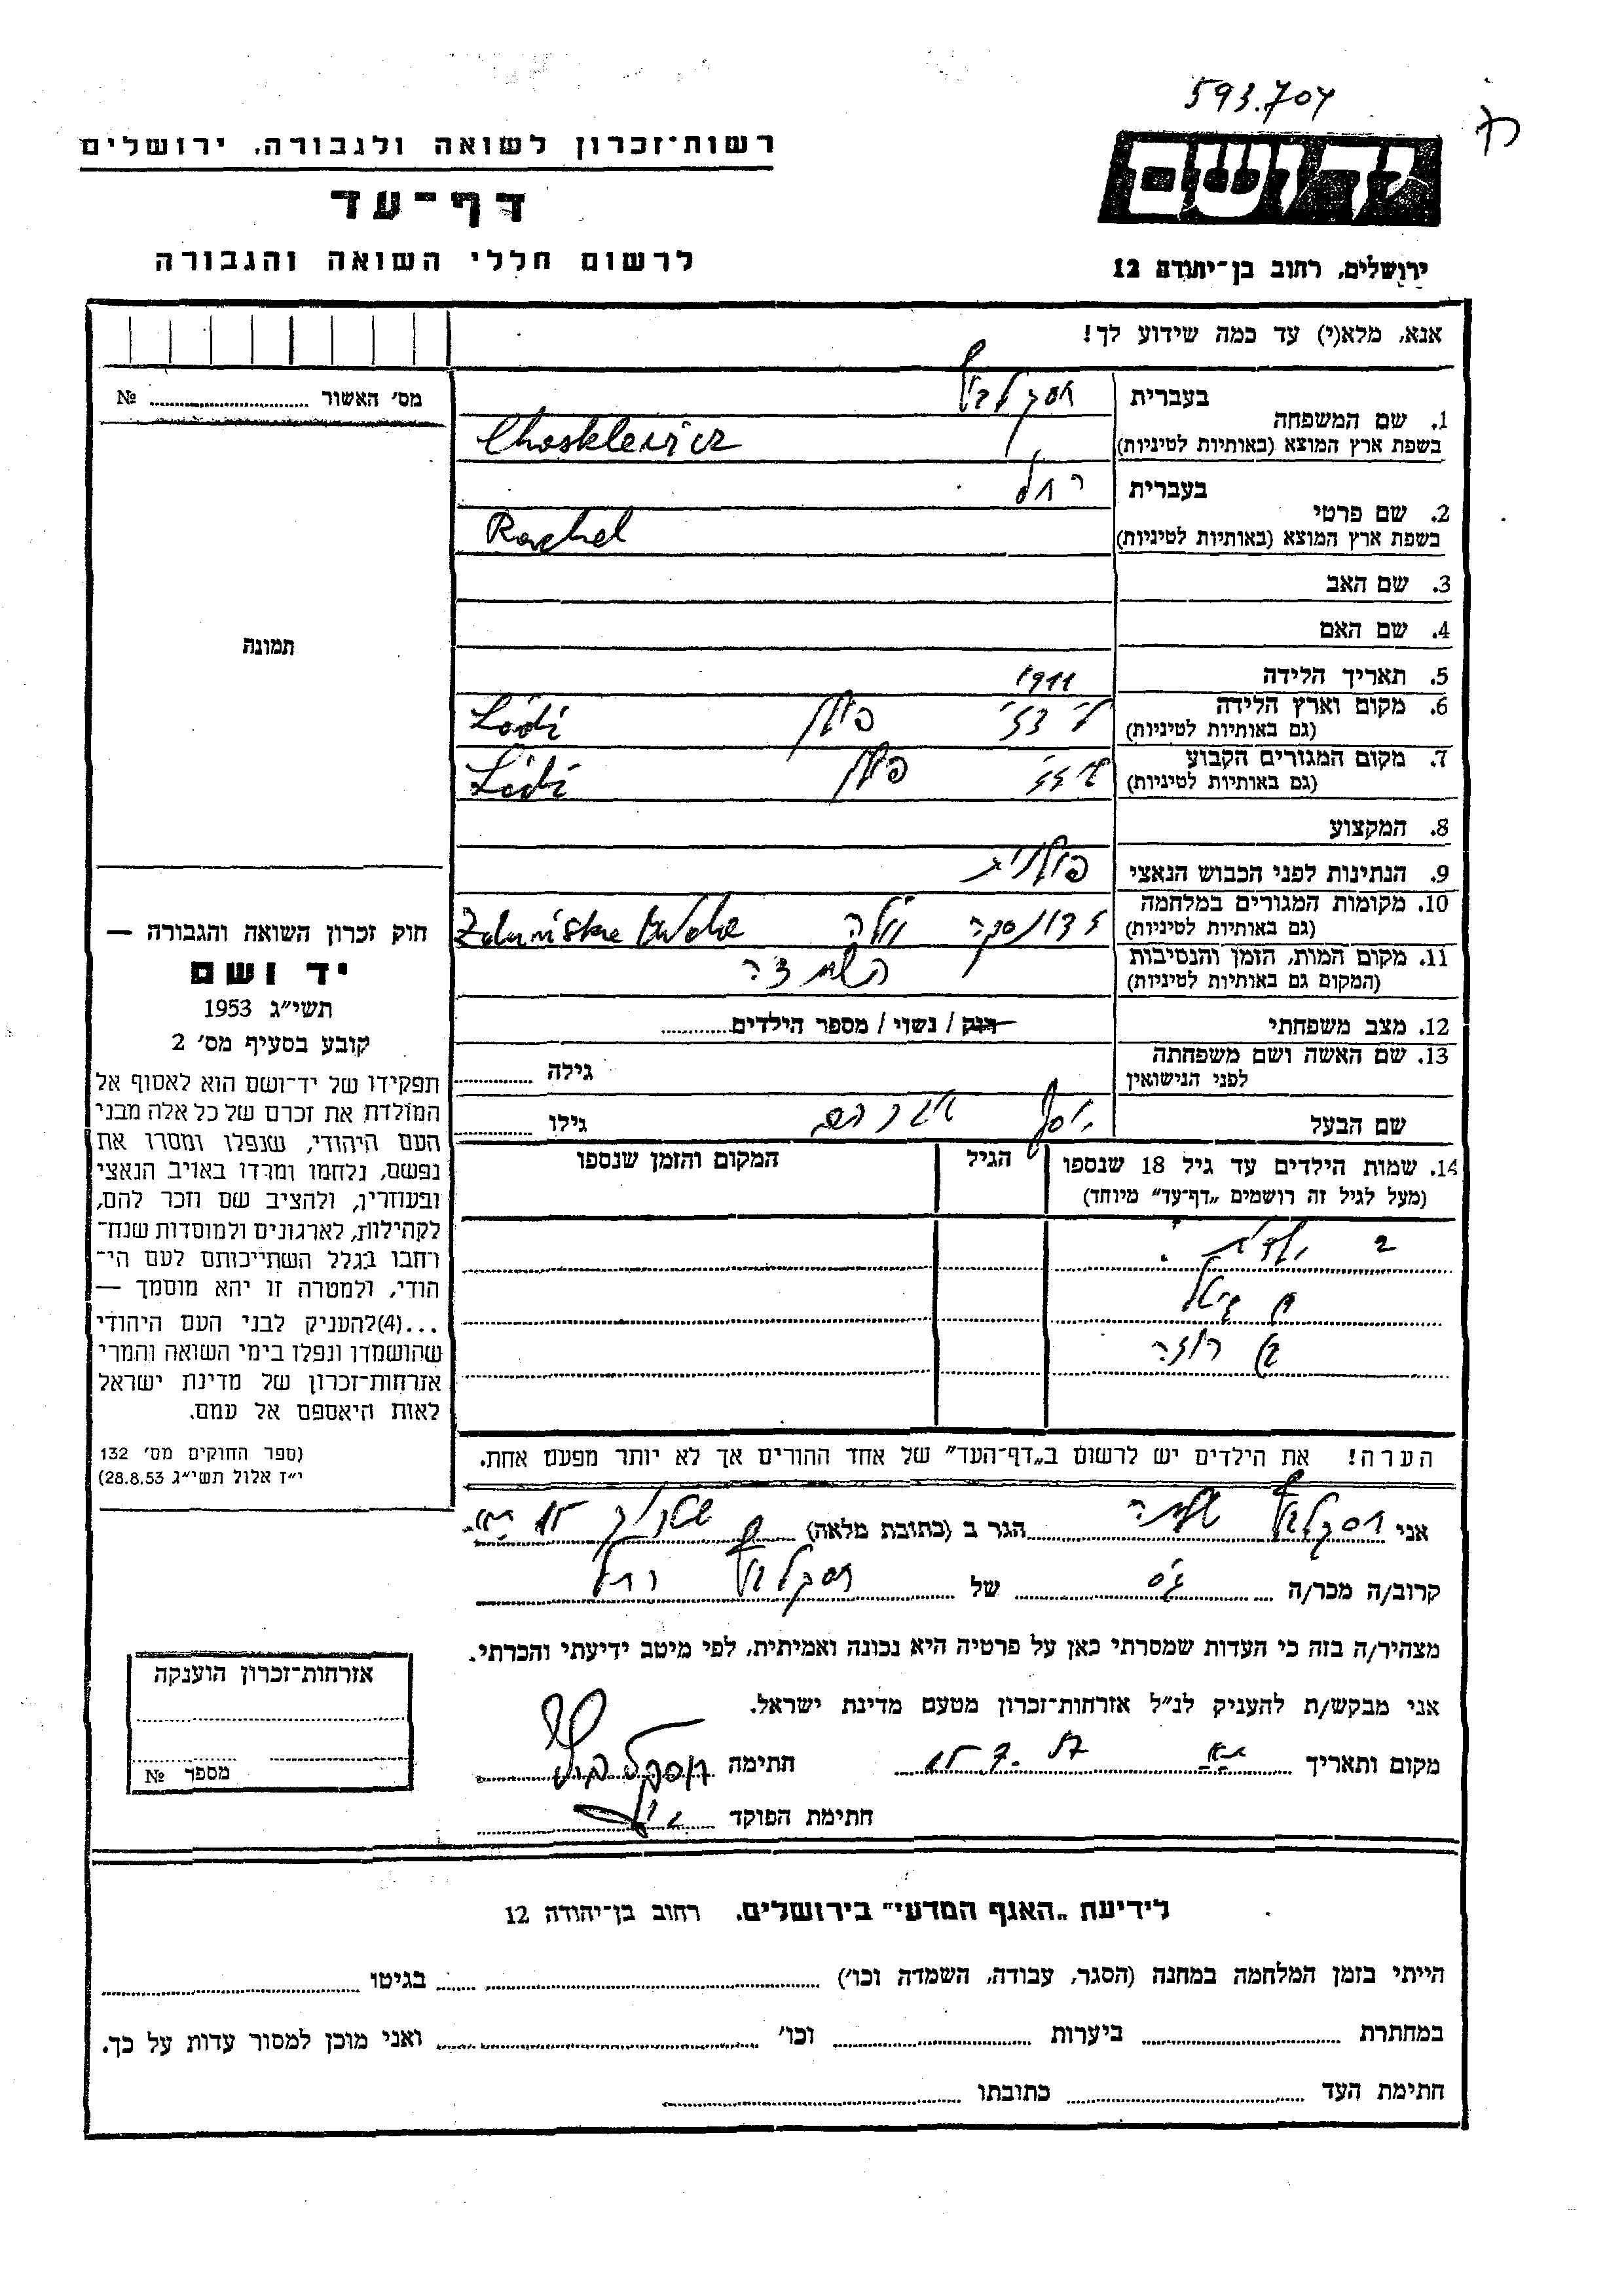 593.704
רשות־זכרון לשואה ולגבורה. ירושלים
דף־עד
לרשום חללי השואה והגבורה
יד ושם
ירושלים. רחוב בן־יהודה 12
אנא, מלא(י) עד כמה שידוע לך!
מס׳ האשור № 
בעברית
1. שם המשפחה
בשפת ארץ המוצא (באותיות לטיניות) Chosklewicz
בעברית רחל
2. שם פרטי
בשפת ארץ המוצא (באותיות לטיניות) Rachel
3. שם האב
4. שם האם
תמונה
5. תאריך הלידה 1911
6. מקום וארץ הלידה פולין Łódź
(גם באותיות לטיניות)
7. מקום המגורים הקבוע פולין Łódź
(גם באותיות לטיניות)
8. המקצוע
9. הנתינות לפני הכבוש הנאצי פולנית
10. מקומות המגורים במלחמה זדונסקה וולה Zdunska Wola
(גם באותיות לטיניות)
11. מקום המות, הזמן והנסיבות
(המקום גם באותיות לטיניות)
12. מצב משפחתי רוק / נשוי / מספר הילדים
13. שם האשה ושם משפחתה
לפני הנישואין גילה
שם הבעל יוסף אברהם גילו
14. שמות הילדים עד גיל 18 שנספו הגיל המקום והזמן שנספו
(מעל לגיל זה רושמים „דף־עד״ מיוחד)
2 ילדות
רוזה
הערה! את הילדים יש לרשום ב„דף־העד״ של אחד ההורים אך לא יותר מפעם אחת.
חוק זכרון השואה והגבורה —
יד ושם
תשי״ג 1953
קובע בסעיף מס׳ 2
תפקידו של יד־ושם הוא לאסוף אל
המולדת את זכרם של כל אלה מבני
העם היהודי, שנפלו ומסרו את
נפשם, נלחמו ומרדו באויב הנאצי
ובעוזריו, ולהציב שם וזכר להם,
לקהילות, לארגונים ולמוסדות שנח־
רחבו בגלל השתייכותם לעם הי־
הודי, ולמטרה זו יהא מוסמך —
...(4)להעניק לבני העם היהודי
שהושמדו ונפלו בימי השואה והמרי
אזרחות־זכרון של מדינת ישראל
לאות היאספם אל עמם.
(ספר החוקים מס׳ 132
י״ז אלול תשי״ג 28.8.53)
אני הגר ב (כתובת מלאה)
קרוב/ה מכר/ה גיס של רחל
מצהיר/ה בזה כי העדות שמסרתי כאן על פרטיה היא נכונה ואמיתית, לפי מיטב ידיעתי והכרתי.
אני מבקש/ת להעניק לנ״ל אזרחות־זכרון מטעם מדינת ישראל.
מקום ותאריך חתימה
חתימת הפוקד
אזרחות־זכרון הוענקה
מספר №
לידיעת „האגף המדעי״ בירושלים. רחוב בן־יהודה 12
הייתי בזמן המלחמה במחנה (הסגר, עבודה, השמדה וכו׳) בגיטו
במחתרת ביערות וכו׳ ואני מוכן למסור עדות על כך.
חתימת העד כתובתו